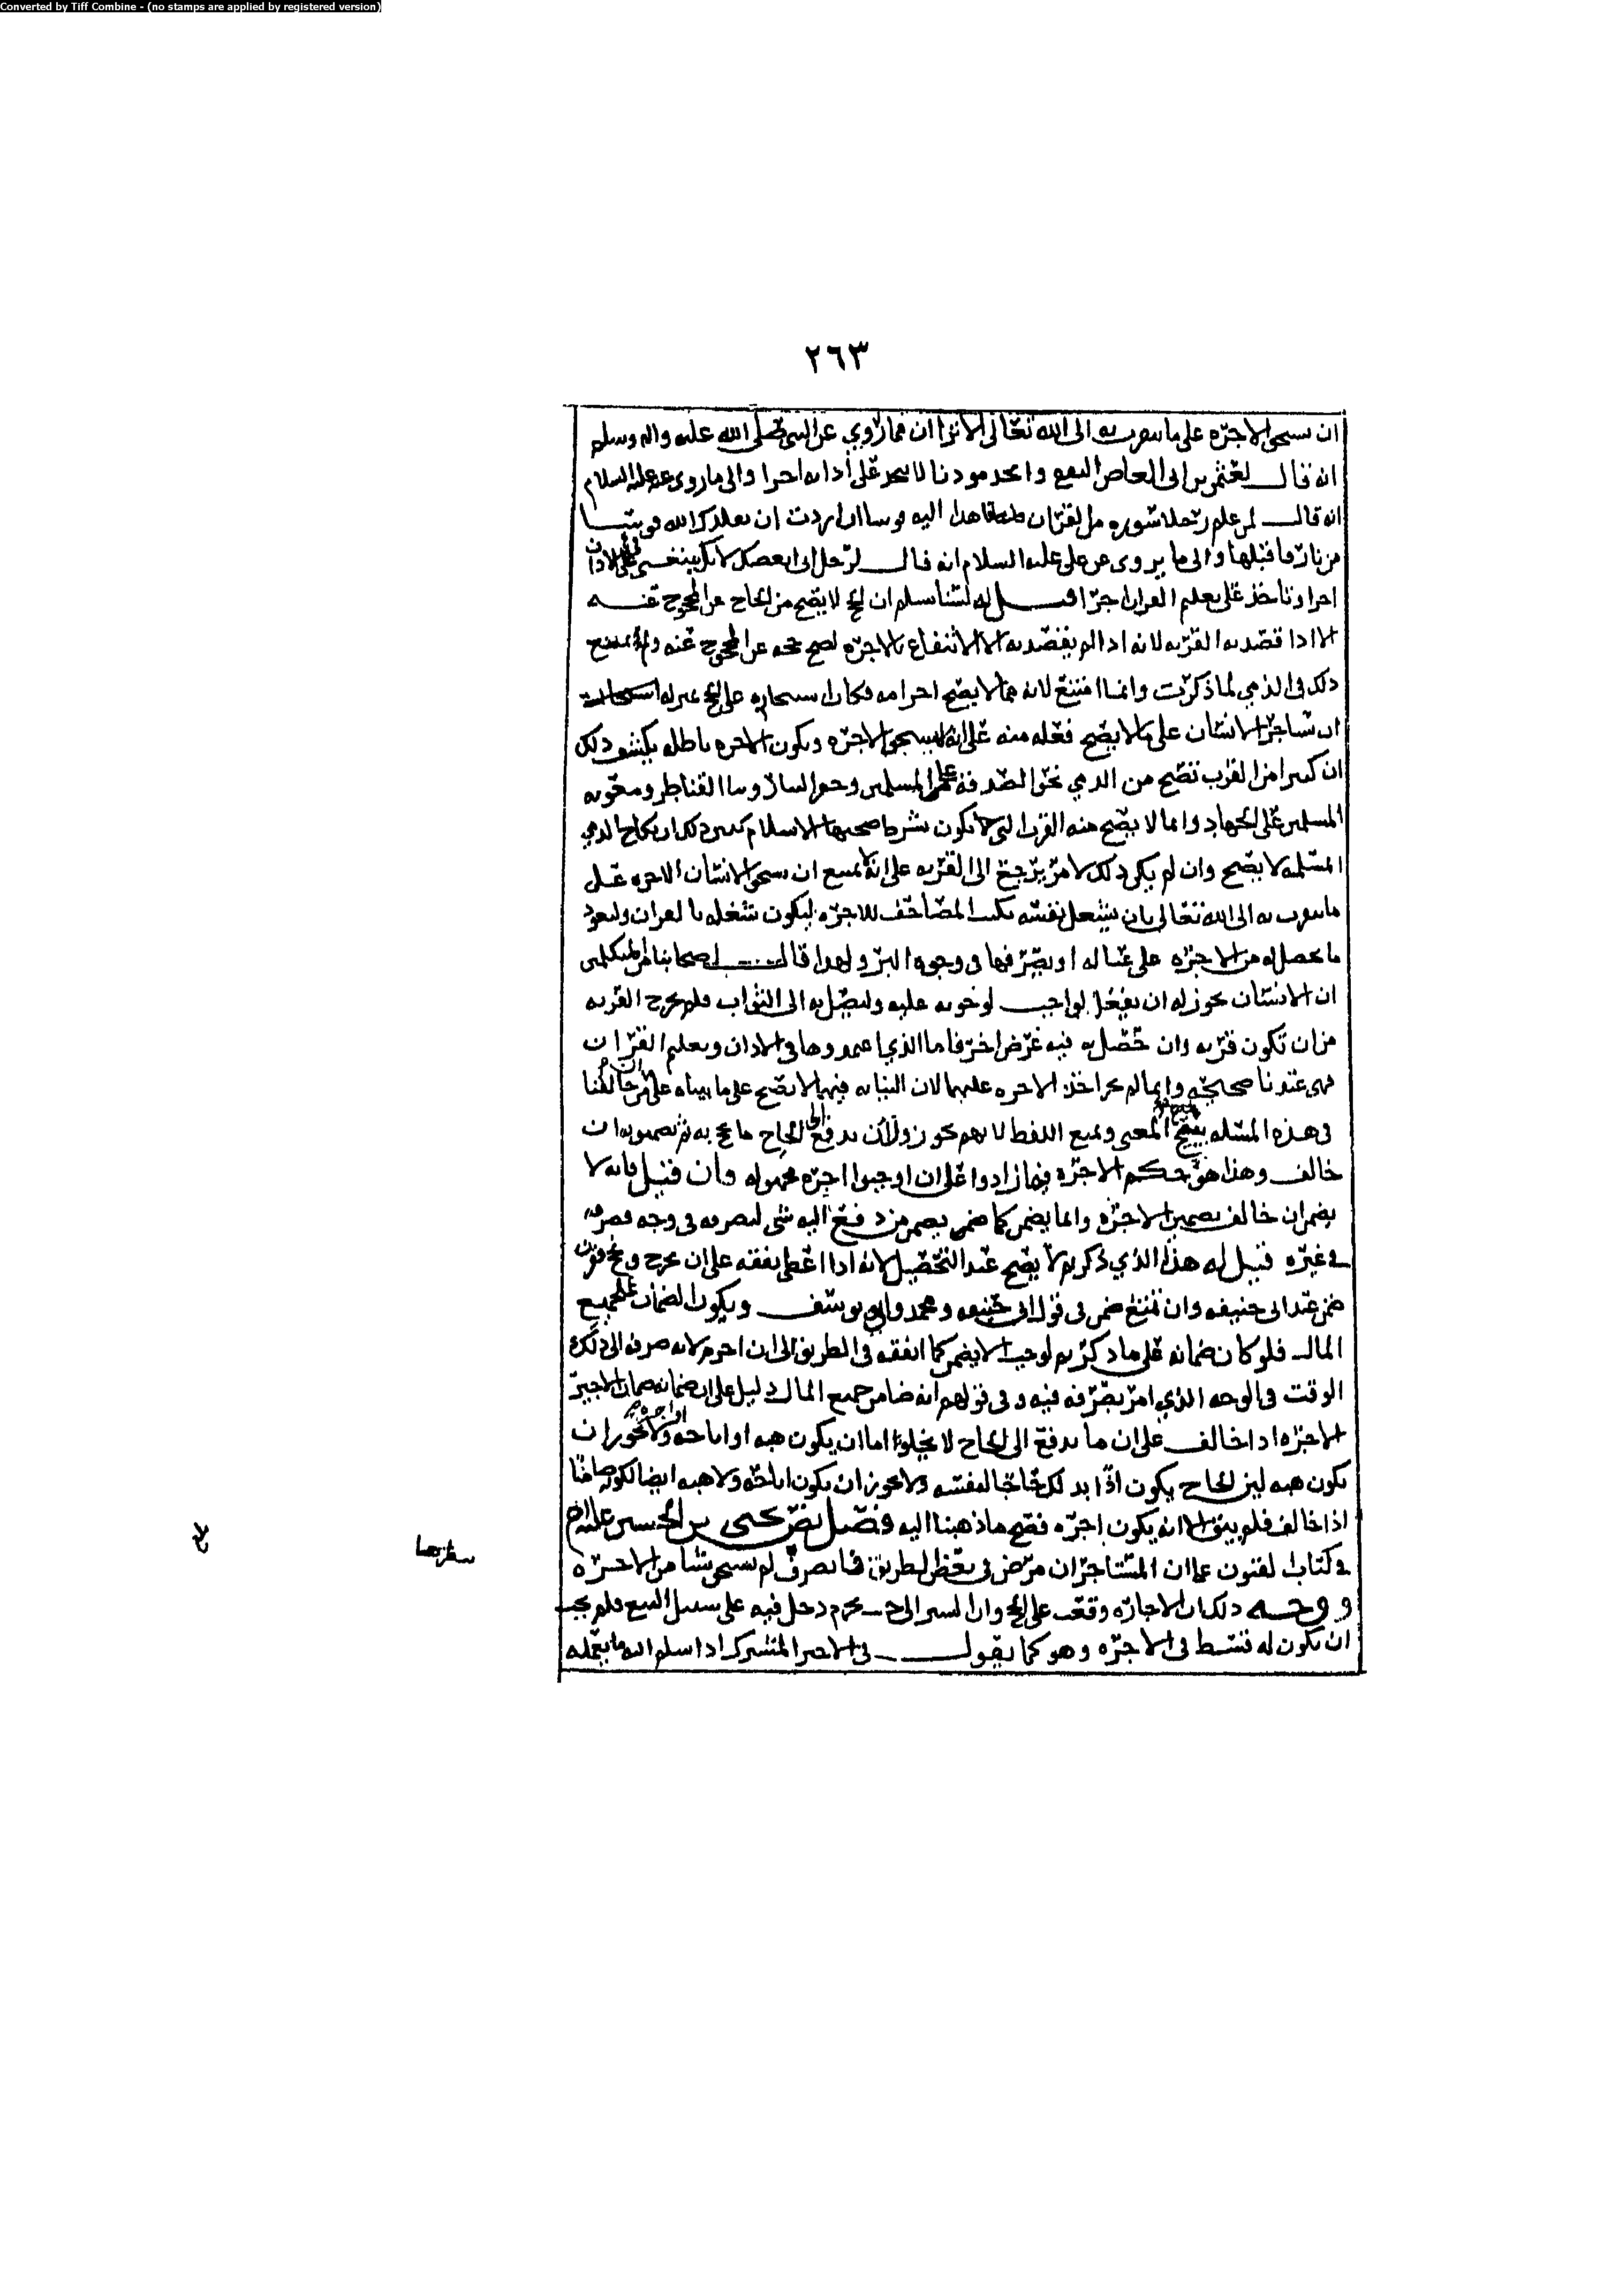 Converted by Tiff Combine - (no stamps are applied by registered version)
٢٦٣
ان يستحق الاجرة على ما يتقرب به الى الله تعالى الا ترا ان مما روي عن النبي صلى الله عليه واله وسلم
انه قال لعثمن بن ابي العاص واتخذ موذنا لا ياخذ على أذانه اجرا والى ما روى عنه عليه السلام
انه قال لمن علم رجلا سورة من القرآن فاهدا اليه قوسا ان اردت ان يقلدك الله قوسا
من نار فاقبلها والى ما يروى عن علي عليه السلام انه قال لرجل اني ابغضك لانك تبتغي على الاذان
اجرا وتاخذ على تعليم القرآن اجرا قيل له لسنا نسلم ان الحج لا يصح من الحاج عن المحجوج عنه
الا اذا قصد به القربه لانه اذا لم يقصد به الا الانتفاع بالاجرة لصح حجه عن المحجوج عنه ولم يمتنع
ذلك في الذمي لما ذكرت وانما امتنع لانه مما لا يصح احرامه فكان استيجاره على الحج بمنزله
ان يستاجر الانسان على ما لا يصح فعله منه على انه لا يستحق الاجرة وتكون الاجره باطله يكشف ذلك
ان كثيرا من القرب تصح من الذمي نحو الصدقه على المسلمين وحفر البار وبنا القناطر ومعونه
المسلمين على الجهاد وانما لا يصح منه القرب التي يكون شرط صحتها الاسلام يبين ذلك ان نكاح الذمي
المسلمه لا يصح وان لم يكن ذلك لامر يرجع الى القربه على انه لا يمتنع ان يستحق الانسان الاجره على
ما يتقرب به الى الله تعالى بان يشغل نفسه بكتب المصاحف للاجره ليكون شغله بالقران وليعود
ما يحصل له من الاجره على عياله او يصرفها في وجوه البر ولهذا قال اصحابنا من المتكلمين
ان الانسان يجوز له ان يفعل الواجب لوجوبه عليه وليصل به الى الثواب فلم يخرج القربه
من ان تكون قربه وان حصل به فيه غرض اخر فاما الذي اعتمدوها في الاذان وتعليم القران
فهى عندنا صحيحه وانما لم يجز اخذ الاجره عليهما لان النيابه فيهما لا تصح على ما بيناه على ان من خالفنا
في هذه المسئله يبيح المعنى ويمنع اللفظ لانهم يجوزون ان يدفع الى الحاج ما يحج به ثم يضمنونه ان
خالف وهذا هو حكم الاجرة فما زادوا على ان اوجبوا اجره مجهوله وان قيل فانه لا
يضمن ان خالف تضمين الاجرة وانما يضمن كما يضمن من دفع اليه شي ليصرفه في وجه فصرفه
في غيره قيل له هذا الذي ذكرتم لا يصح عند التحصيل لانه اذا اعطى نفقه على ان يخرج ويحج فقرن
ضمن عند ابي حنيفه وان تمتع ضمن في قول ابي حنيفه ومحمد وابي يوسف ويكون الضمان لجميع
المال فلو كان ضمانه على ما ذكرتم لوجب الا يضمن كما انفقه في الطريق الى ان احرم لانه صرفه الى ذلك
الوقت في الوجه الذي امر بصرفه فيه وفي قولهم انه ضامن جميع المال دليل على ان ضمانه ضمان الاجير
الاجره اذا خالف على ان ما يدفع الى الحاج لا يخلوا اما ان يكون هبه او اباحه او اجره ولا يجوز ان
يكون هبه لان الحاج يكون اذا بذلك حاجا لنفسه ولا يجوز ان يكون اباحه ولا هبه ايضا لكونه ضامنا
اذا خالف فلم يبق الا انه يكون اجره فصح ما ذهبنا اليه فصل نص يحيى بن الحسين عليه السلام
في كتاب الفنون على ان المستاجر ان مرض في بعض الطريق فانصرف لم يستحق شيا من الاجره
ووجه ذلك ان الاجاره وقعت على الحج وان السير الى دخل فيه على سبيل التبع فلم يجب
ان يكون له قسط في الاجره وهو كما نقول في الاجير المشترك اذا سلم اليه ما يعمله